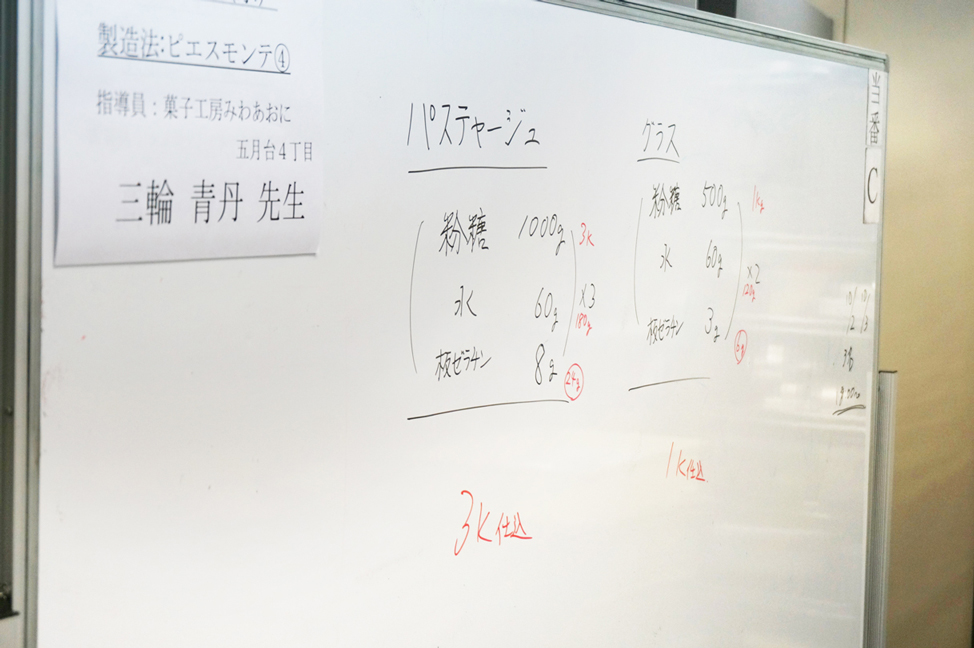 製造法:ピエスモンテ④
指導員：菓子工房みわあおに
五月台４丁目
三輪 青丹 先生
パスティヤージュ
粉糖 1000g 3K
水 60g ×3
180g
板ゼラチン 8g 24g
3K仕込
グラス
粉糖 500g 1kg
水 60g ×2
120g
板ゼラチン 3g 6g
1K仕込
当番
C